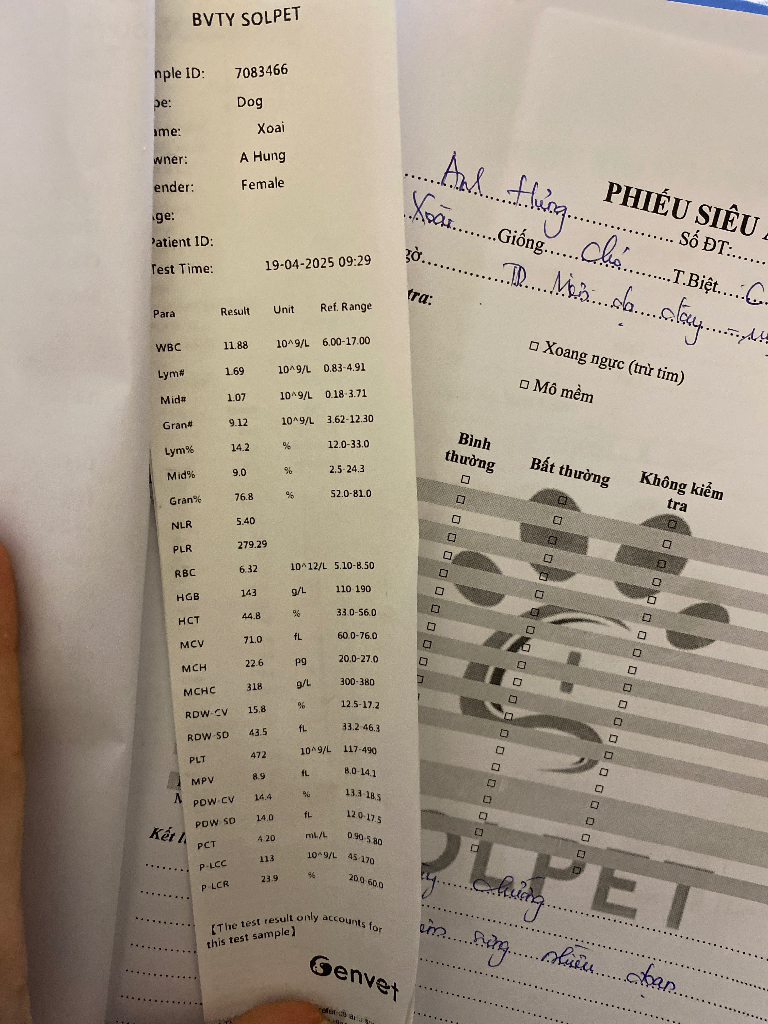 BVTY SOLPET
mple ID: 7083466
pe: Dog
ame: Xoai
wner: A Hung
ender: Female
ge:
Patient ID:
Test Time: 19-04-2025 09:29
Para Result Unit Ref. Range
WBC 11.88 10^9/L 6.00-17.00
Lym# 1.69 10^9/L 0.83-4.91
Mid# 1.07 10^9/L 0.18-3.71
Gran# 9.12 10^9/L 3.62-12.30
Lym% 14.2 % 12.0-33.0
Mid% 9.0 % 2.5-24.3
Gran% 76.8 % 52.0-81.0
NLR 5.40
PLR 279.29
RBC 6.32 10^12/L 5.10-8.50
HGB 143 g/L 110-190
HCT 44.8 % 33.0-56.0
MCV 71.0 fL 60.0-76.0
MCH 22.6 pg 20.0-27.0
MCHC 318 g/L 300-380
RDW-CV 15.8 % 12.5-17.2
RDW-SD 43.5 fL 33.2-46.3
PLT 472 10^9/L 117-490
MPV 8.9 fL 8.0-14.1
PDW-CV 14.4 % 13.3-18.5
PDW-SD 14.0 fL 12.0-17.5
PCT 4.20 mL/L 0.90-5.80
P-LCC 113 10^9/L 45-170
P-LCR 23.9 % 20.0-60.0
【The test result only accounts for
this test sample】
Genvet
PHIẾU SIÊU
Anh Hùng Số ĐT:
Xoài Giống Chó T.Biệt C
gờ TD
tra:
Xoang ngực (trừ tim)
Mô mềm
Bình thường Bất thường Không kiểm tra
Kết l
SOLPET
chửng
sừng nhiều đoạn